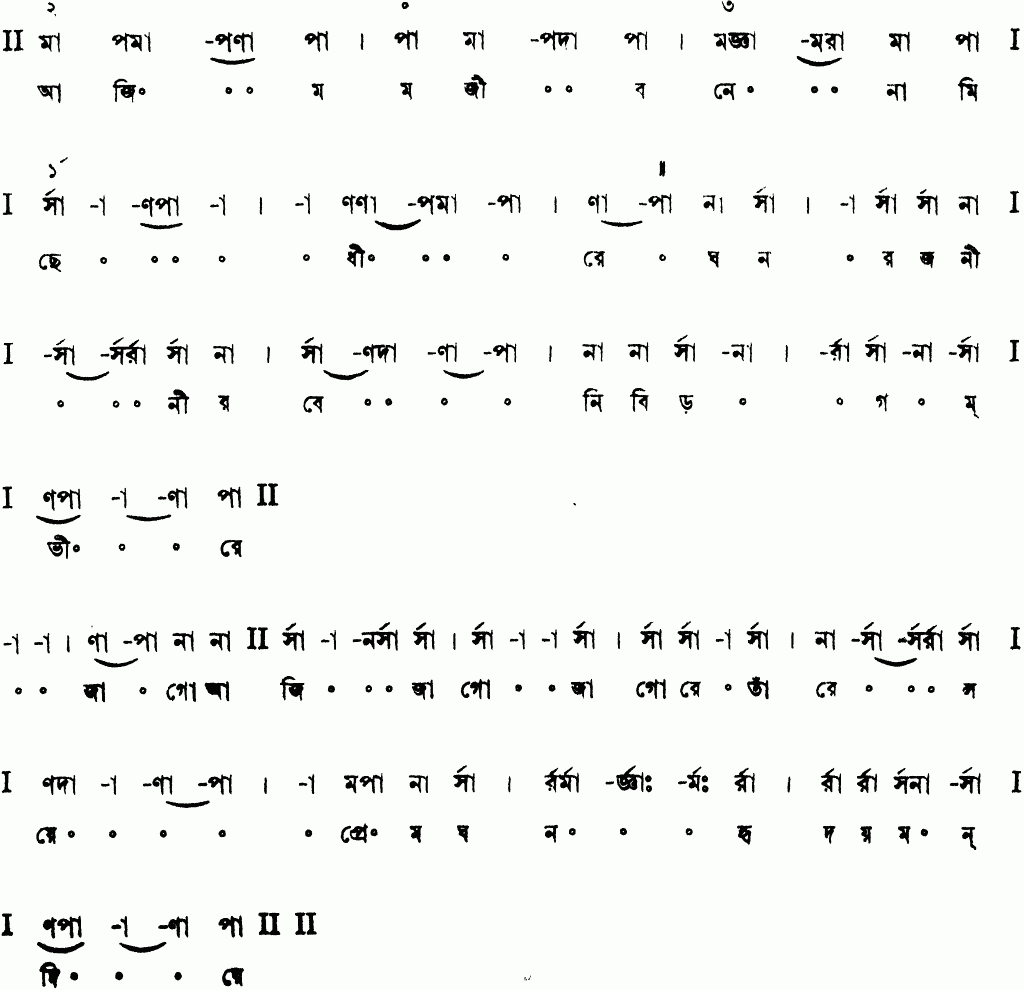 ২ ০ ৩
II মা পমা -পণা পা । পা মা -পদা পা । মজ্ঞা -মরা মা পা I
আ জি॰ ॰ ॰ ম ম জী ॰ ॰ ব নে॰ ॰ ॰ না মি
১´ ॥
I র্সা -া -ণপা -া । -া ণণা -পমা -পা । ণা -পা না র্সা । -া র্সা র্সা না I
ছে ॰ ॰ ॰ ॰ ॰ ধী॰ ॰ ॰ ॰ রে ॰ ঘ ন ॰ র জ নী
I -র্সা -র্সর্রা র্সা না । র্সা -ণদা -ণা -পা । না না র্সা -না । -র্রা র্সা -না -র্সা I
॰ ॰ ॰ নী র বে ॰ ॰ ॰ ॰ নি বি ড় ॰ ॰ গ ॰ ম্
I ণপা -া -ণা পা II
ভী॰ ॰ ॰ রে
-া -া । ণা -পা না না II র্সা -া -নর্সা র্সা । র্সা -া -া র্সা । র্সা র্সা -া র্সা । না -র্সা -র্সর্রা র্সা I
॰ ॰ জা ॰ গো আ জি ॰ ॰ ॰ জা গো ॰ ॰ জা গো রে ॰ তাঁ রে ॰ ॰ ॰ ল
I ণদা -া -ণা -পা । -া মপা না র্সা । র্রর্মা -র্জ্ঞাঃ -র্মঃ র্রা । র্রা র্রা র্সনা -র্সা I
য়ে॰ ॰ ॰ ॰ ॰ প্রে॰ ম ঘ ন॰ ॰ ॰ হৃ দ য় ম॰ ন্
I ণপা -া -ণা পা II II
দি॰ ॰ ॰ রে